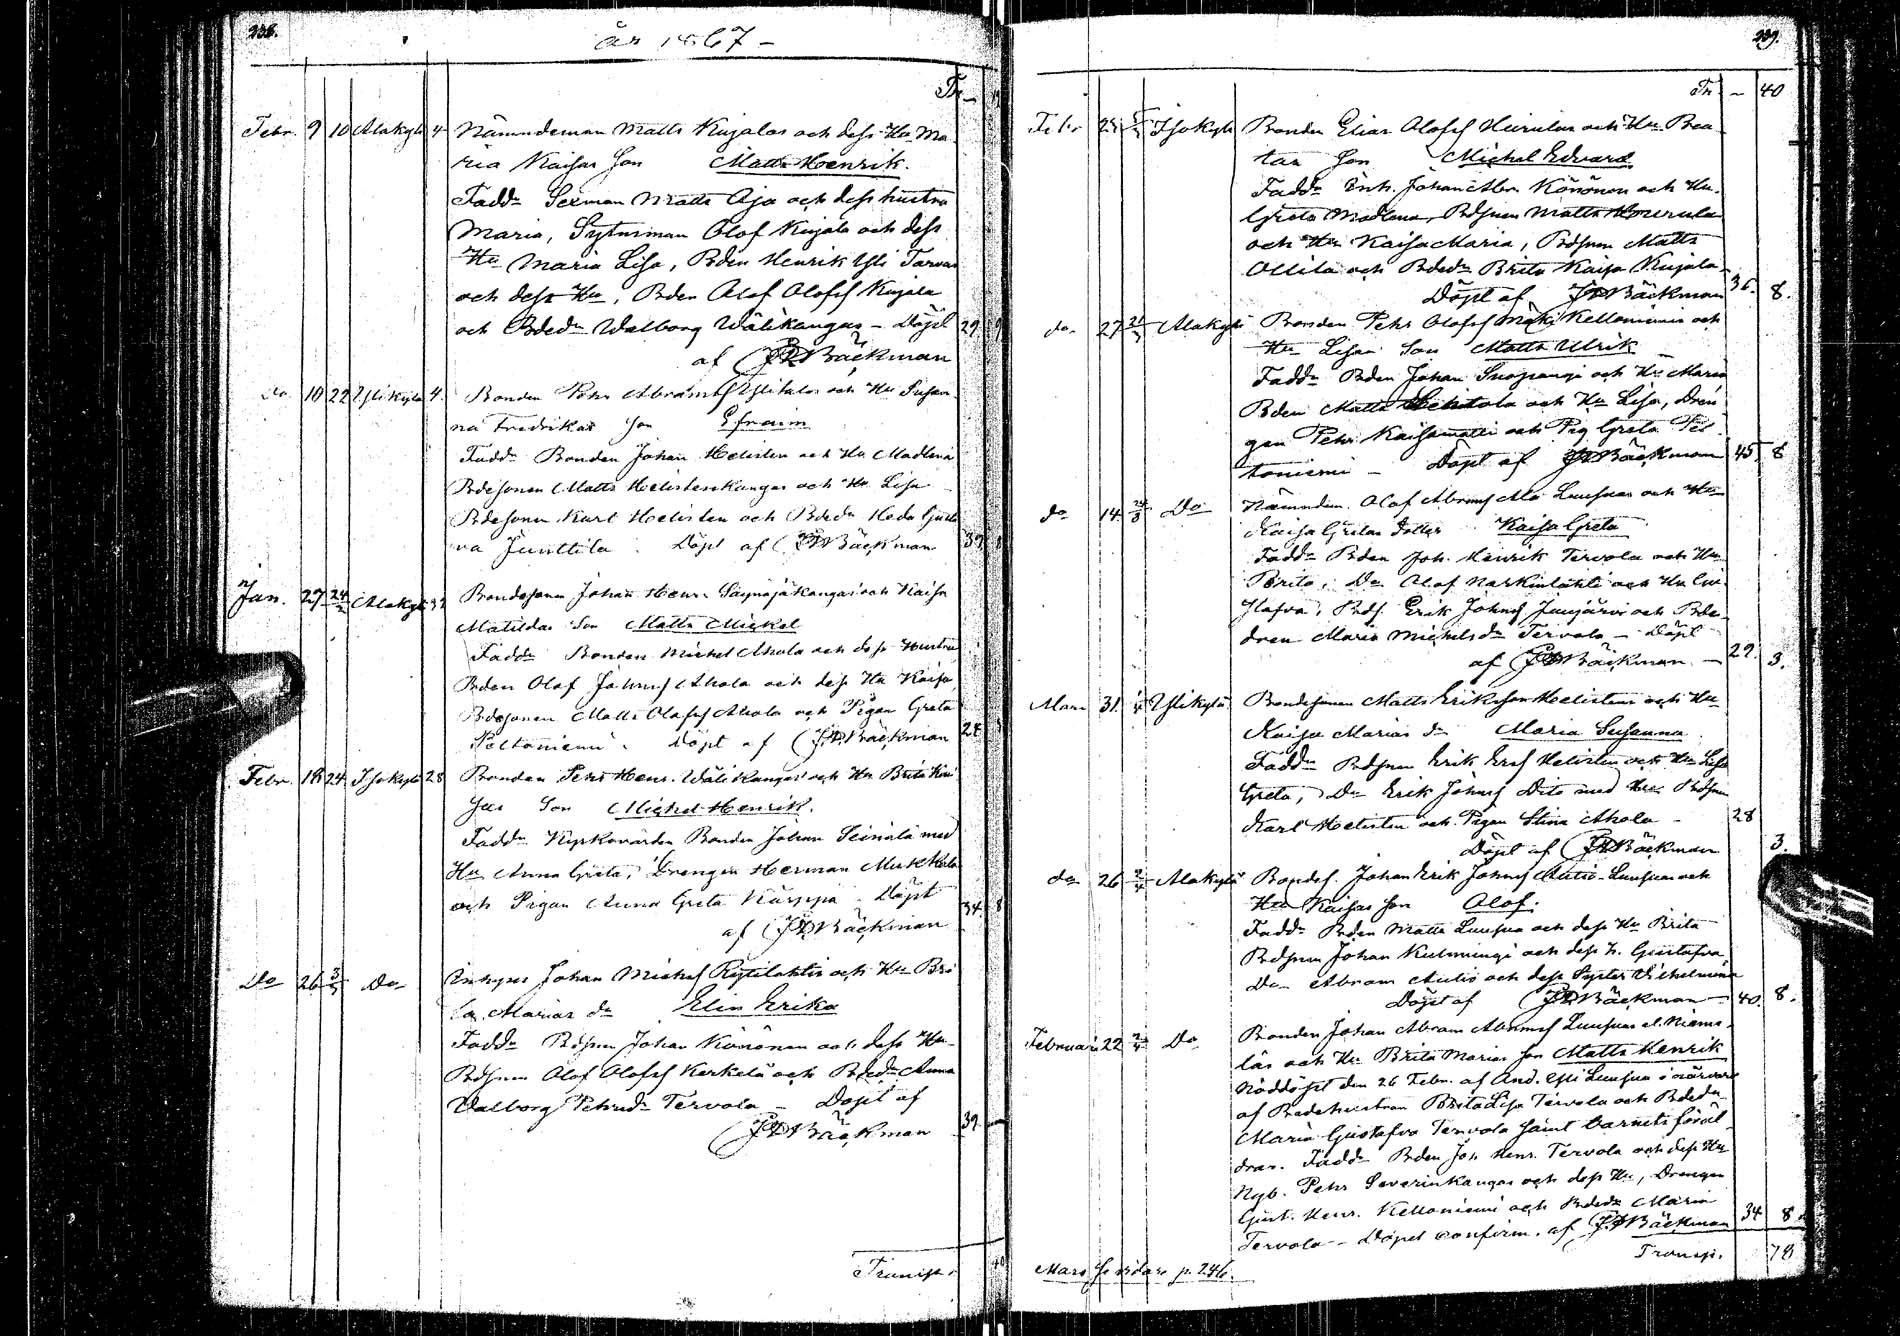 238.
år 1867 –
Tr –
Febr. 9 10 Alakylä 4 Nämndeman Matts Kujalas och dess Hu Ma-
ria Kaisas Son Matts Henrik.
Fadd. Sexman Matts Aja och dess hustru
Maria, Sytnisman Olof Kujala och dess
Hu Maria Lisa, Bden Henrik Yli Tarvas
och dess Hu, Bden Olof Olofsf Kujala
och Bdedr Walborg Wälikangas – Döpt 29. 9
af JD Bäckman
do 10 22 Ylikylä 4. Bonden Pehr Abramsf Ylitalos och Hu Susan-
na Fredrikas Son Efraim
Fadd. Bonden Johan Helisten och Hu Madlena
Bdesonen Matts Helistenkangas och Hu Lisa
Bdesonen Karl Helisten och Bdedr Heda Gusta-
va Junttila. Döpt af JD Bäckman 39
Jan. 27 24/2 Alakylä Bondesonen Johan Henr. Säynäjäkangas och Kaisa
Matildas Son Matts Mickel
Fadd. Bonden Michel Ahola och dess Hustru
Bden Olof Johansf Ahola och dess Hu Kaisa,
Bdesonen Matts Olofsf Ahola och Pigan Greta
Peltoniemi. Döpt af JD Bäckman 24
Febr. 18 24 Isokylä 28 Bonden Pehr Henr. Wälikangas och Hu Brita Kai-
sas Son Michel Henrik.
Fadd. Kyrkovärden Bonden Johan Seinälä med
Hu Anna Greta, Drengen Herman
och Pigan Anna Greta Karppa. Döpt 34. 8
af JD Bäckman
Do 26 3/3 Do Inhyses Johan Michelsf Rytilahtis och Hu Bri-
ta Marias dr Elin Erika
Fadd. Bdsonen Johan Könönen och dess Hu
Bdsonen Olof Olofsf Kerkelä och Bdedr Anna
Walborg Pehrsdr Tervola – Döpt af
JD Bäckman 39
Transp. 40
239.
Tr – 40
Febr 25 Isokylä Bonden Elias Olofsf Hourulas och Hu Bea-
tas Son Michel Edvard
Fadd. Inh. Johan Abr. Könönen och Hu
Greta Madlena, Bdsonen Matts Hourula
och Hu Kaisa Maria, Bdsonen Matts
Ollila och Bdedr Brita Kaisa Kujala –
Döpt af JD Bäckman 36. 8.
do 27 Alakylä Bonden Pehr Olofsf Mäki Kelloniemis och
Hu Lisas Son Matts Ulrik
Fadd. Bden Johan Suopangi och Hu Maria
Bden Matts Lehtola och Hu Lisa, Dren-
gen Pehr Kaisamatti och Pig Greta Pel-
toniemi – Döpt af JD Bäckman 45. 8
do 14. 24/3 Do Nämndem. Olof Abramsf Ala Luusuas och Hu
Kaisa Gretas dotter Kaisa Greta
Fadd. Bden Joh. Henrik Tervola och Hu
Brita, Do Olof Narkinlahti och Hu Gu-
stafva, Bdsf. Erik Johansf Jumjärvi och Bde-
dren Maria Michelsdr Tervola – Döpt
af JD Bäckman – 29. 3.
Mars 31. 1/4 Ylikylä Bondesonen Matts Eriksson Helistens och Hu
Kaisa Marias dr Maria Susanna
Fadd. Bdsonen Erik Ersf Helisten och Hu Lisa
Greta, Do Erik Johansf Dito med Hu Bdsonen
Karl Helisten och Pigan Stina Ahola – 28
Döpt af JD Bäckman 3.
do 26 2/4 Alakylä Bondes. Johan Erik Johansf Autio-Luusuas och
Hu Kaisas Son Olof.
Fadd. Bden Matts Luusua och dess Hu Brita
Bdsonen Johan Kulmungi och dess h. Gustafva,
Do Abram Autio och dess Syster Wilhelmina
Döpt af JD Bäckman – 40. 8.
Februari 22 2/4 Do Bonden Johan Abram Abramsf Luusuas el. Nieme-
läs och Hu Brita Marias Son Matts Henrik
Nöddöpt den 26 Febr. af And. Yli Luusua i närvaro
af Bdehustrun Brita Lisa Tervola och Bdedr
Maria Gustafva Tervola samt barnets föräl-
drar. Fadd. Bden Joh. Henr. Tervola och dess Hu
Nyb. Pehr Severinkangas och dess Hu, Drengen
Gust. Henr. Kelloniemi och Bdedr Maria
Tervola – Döpet confirm. af JD Bäckman 34 8.
Transp. 78
Mars Se vidare p. 246.